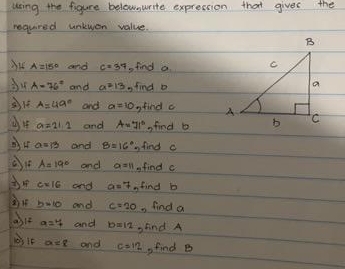 Using the figure below, write expression that gives the
required unkwon value.
1) If A=15° and c=37, find a
2) If A=76° and a=13, find b
3) If A=49° and a=10, find c
4) If a=21.2 and A=71°, find b
5) If a=13 and B=16°, find c
6) If A=19° and a=11, find c
7) If c=16 and a=7, find b
8) If b=10 and c=20, find a
9) If a=7 and b=12, find A
10) If a=8 and c=12, find B
B
c
a
A
b
C